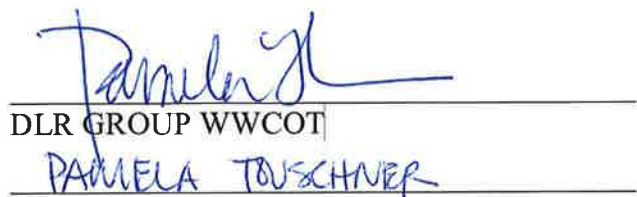 Pamela
DLR GROUP WWCOT
PAMELA TOUSCHNER